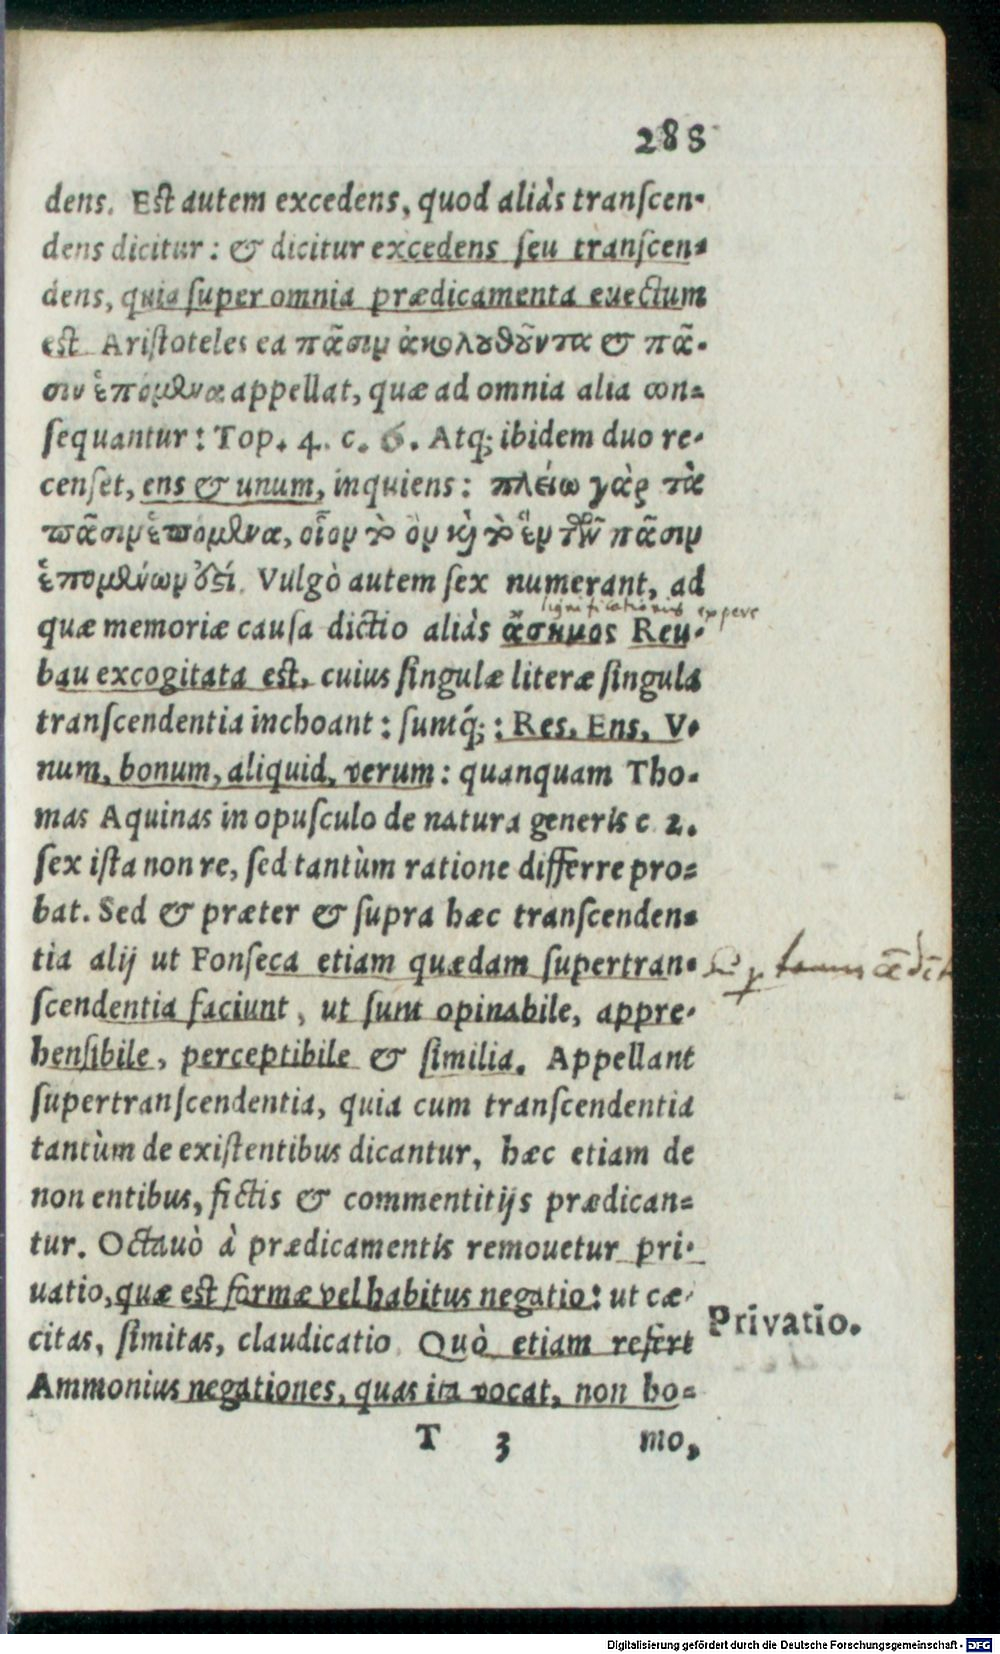 288
dens. Est autem excedens, quod aliàs transcen-
dens dicitur: & dicitur excedens seu transcen-
dens, quia super omnia prædicamenta euectum
est. Aristoteles ea πᾶσιν ἀκολουθοῦντα & πᾶ-
σιν ἑπόμενα appellat, quæ ad omnia alia con-
sequantur: Top. 4. c. 6. Atq; ibidem duo re-
censet, ens & unum, inquiens: πλείω γὰρ τὰ
πᾶσιν ἑπόμενα, οἷον τὸ ὂν καὶ τὸ ἓν τῶν πᾶσιν
ἑπομένων ἐστί. Vulgò autem sex numerant, ad
significationis expers
quæ memoriæ causa dictio aliàs ἄσημος Reu-
bau excogitata est, cuius singulæ literæ singula
transcendentia inchoant: sumtq́;: Res, Ens, V-
num, bonum, aliquid, verum: quanquam Tho-
mas Aquinas in opusculo de natura generis c 2.
sex ista non re, sed tantùm ratione differre pro-
bat. Sed & præter & supra hæc transcenden-
tia alij ut Fonseca etiam quædam supertran-
scendentia faciunt, ut sunt opinabile, appre-
hensibile, perceptibile & similia. Appellant
supertranscendentia, quia cum transcendentia
tantùm de existentibus dicantur, hæc etiam de
non entibus, fictis & commentitijs prædican-
tur. Octauò à prædicamentis remouetur pri-
uatio, quæ est formæ vel habitus negatio: ut cæ-
citas, simitas, claudicatio. Quò etiam refert
Privatio.
Ammonius negationes, quas ita vocat, non ho-
T 3 mo,
Digitalisierung gefördert durch die Deutsche Forschungsgemeinschaft - DFG